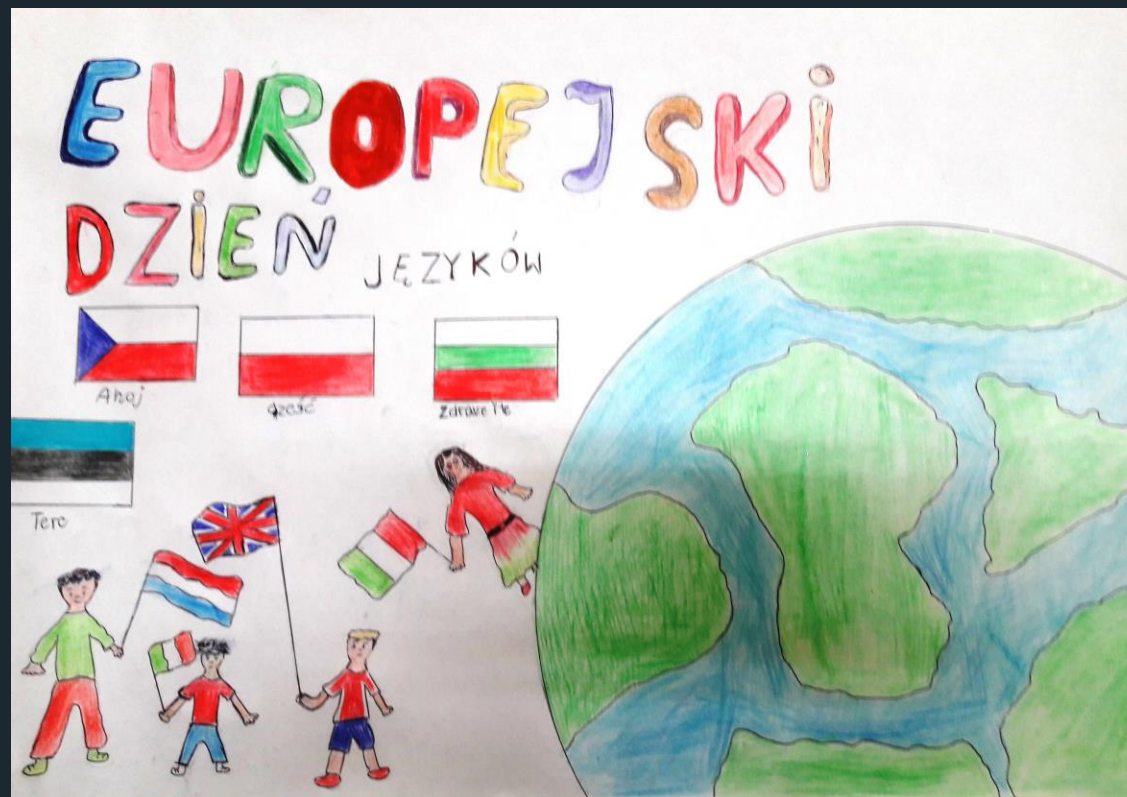 EUROPEJSKI
DZIEŃ JĘZYKÓW
Ahoj
Cześć
Zdraveite
Tere